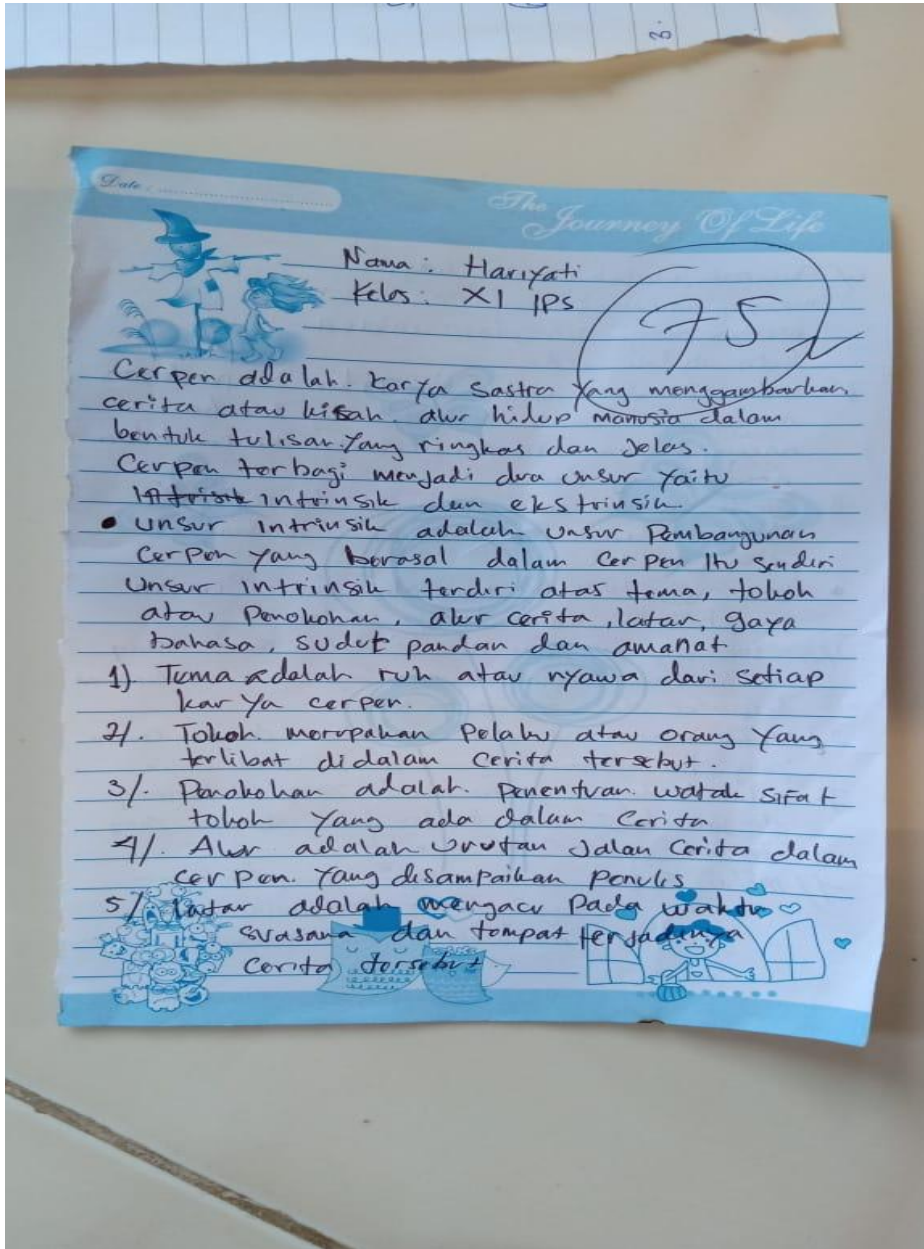 3.
Date :
The
Journey Of Life
Nama : Hariyati
Kelas : XI IPS
75
Cerpen adalah. karya sastra yang menggambarkan
cerita atau kisah alur hidup manusia dalam
bentuk tulisan yang ringkas dan Jelas.
Cerpen terbagi menjadi dua unsur yaitu
intrinsik dan ekstrinsik.
• unsur intrinsik adalah unsur Pembangunan
Cerpen yang berasal dalam Cerpen Itu sendiri
Unsur intrinsik terdiri atas tema, tokoh
atau Penokohan, alur cerita, latar, gaya
bahasa, sudut pandan dan amanat
1) Tema adalah ruh atau nyawa dari setiap
karya cerpen.
2/. Tokoh. merupakan Pelaku atau orang yang
terlibat didalam cerita tersebut.
3/. Penokohan adalah. penentuan watak sifat
tokoh yang ada dalam cerita
4/. Alur adalah urutan Jalan cerita dalam
cerpen. yang disampaikan penulis
5/. latar adalah mengacu pada waktu
suasana dan tempat terjadinya
Cerita tersebut